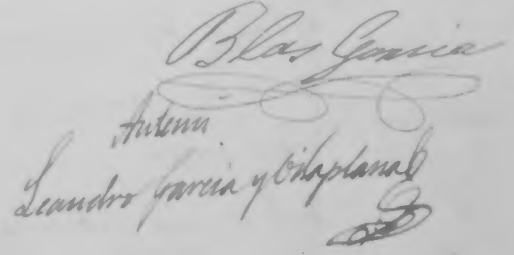 Blas Garcia
Antemi
Leandro Garcia y Vilaplana